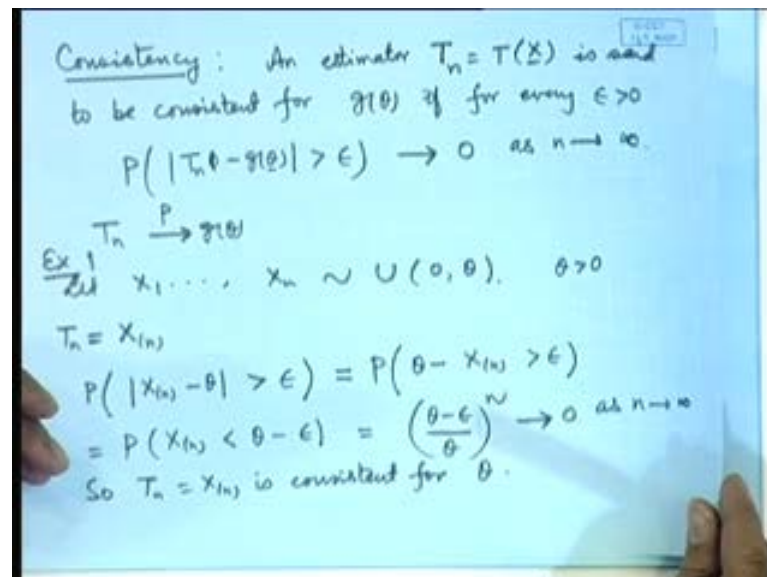 Consistency : An estimator Tₙ = T(X) is said
to be consistent for g(θ) if for every ϵ > 0
P( |Tₙ - g(θ)| > ϵ) → 0 as n → ∞.
Tₙ →ᴾ g(θ)
Ex 1
Let X₁ ..., Xₙ ~ U(0, θ). θ > 0
Tₙ = X₍ₙ₎
P( |X₍ₙ₎ - θ| > ϵ) = P(θ - X₍ₙ₎ > ϵ)
= P(X₍ₙ₎ < θ - ϵ) = ((θ-ϵ)/θ)ⁿ → 0 as n → ∞
So Tₙ = X₍ₙ₎ is consistent for θ.